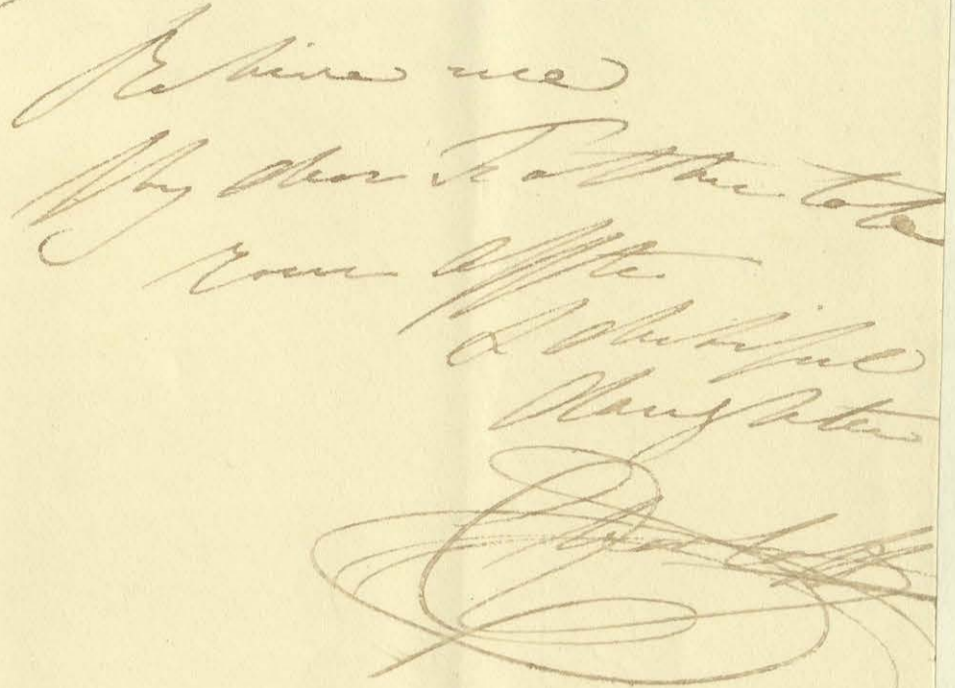 Believe me
My dear Father to be
your affte
& dutiful
Daughter